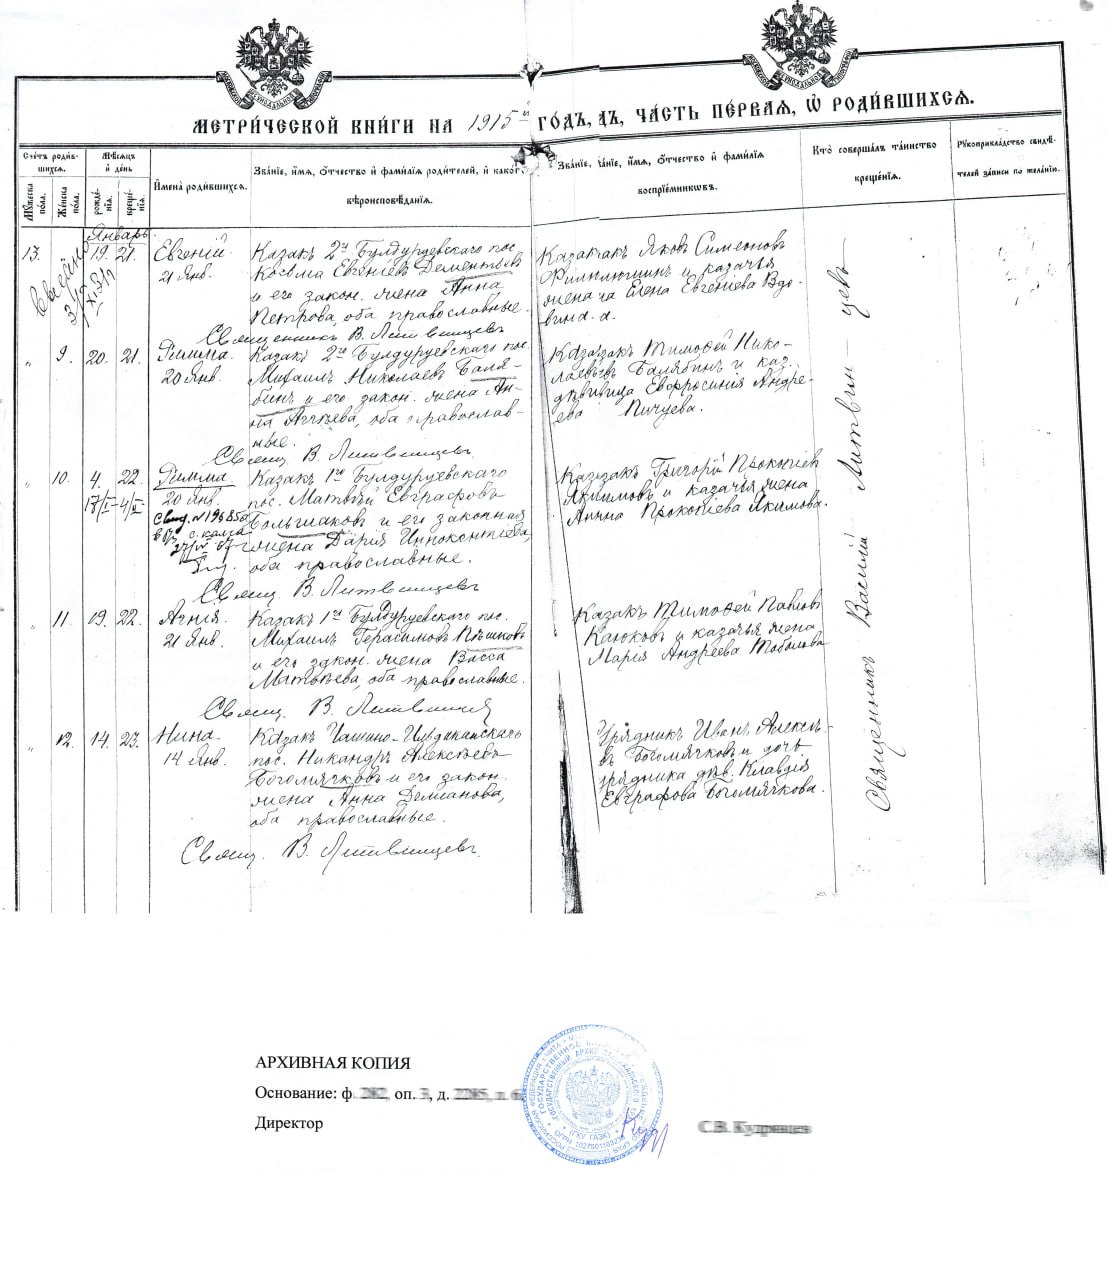 МЕТРИ́ЧЕСКОЙ КНИ́ГИ НА 1915й ГО́ДЪ, ЧА́СТЬ ПЕ́РВАЯ, Ѡ РОДИ́ВШИХСЯ.
Сче́тъ роди́вшихся.
Му́жеска по́ла.
Же́нска по́ла.
Мѣ́сяцъ и́ день
рожде́нія.
креще́нія.
И҆мена̀ роди́вшихся.
Зва́ніе, и҆́мя, ѻ҆́тчество и҆ фами́лія роди́телей, и҆ како́гѡ
вѣроисповѣ́данія.
Зва́ніе, и҆́мя, ѻ҆́тчество и҆ фами́лія
воспрїе́мниковъ.
Кто̀ соверша́лъ та́инство
креще́нія.
Рꙋкоприкла́дство свидѣ́телей за́писи по жела́нію.
Январь.
13. 19. 21. Евгеній
21 Янв.
Казакъ 2го Булдуруевскаго пос.
Косьма Евгеніевъ Дементьевъ
и его закон. жена Анна
Петрова, оба православные.
Казакъ Яковъ Симеоновъ
и казачья
жена Елена Евгеніева Вдовина
Священникъ В. Литвинцевъ
" 9. 20. 21. Римма.
20 Янв.
Казакъ 2го Булдуруевскаго пос.
Михаилъ Николаевъ Балябинъ и его закон. жена Анна
оба православные.
Казакъ Тимофей Николаевъ Балябинъ и каз.
дѣвица Евфросинія Андреева Пичуева.
Свящ. В. Литвинцевъ
" 10. 4. 22. Римма
17/I – 4/II 20 Янв.
Казакъ 1го Булдуруевскаго
пос. Матвѣй Евграфовъ
Большаковъ и его законная
жена Дарія Иннокентіева,
оба православные.
Казакъ Григорій Прокопіевъ
Якимовъ и казачья жена
Анна Прокопіева Якимова.
Свящ. В. Литвинцевъ
" 11. 19. 22. Агнія.
21 Янв.
Казакъ 1го Булдуруевскаго пос.
Михаилъ Герасимовъ Пѣшковъ
и его закон. жена Васса
Матвѣева, оба православные.
Казакъ Тимофей Павловъ
Каюковъ и казачья жена
Марія Андреева Тоболова
Свящ. В. Литвинцевъ
" 12. 14. 23. Нина.
14 Янв.
Казакъ Чашино-Ильдиканскаго
пос. Никандръ Алексѣевъ
Богомячковъ и его закон.
жена Анна Демианова,
оба православные.
Урядникъ Иванъ Алексѣевъ Богомячковъ и дочь
урядника дѣв. Клавдія
Евграфова Богомячкова.
Свящ. В. Литвинцевъ.
Священникъ Василій Литвинцевъ
АРХИВНАЯ КОПИЯ
Основание: ф. 282, оп. 3, д. 2285, л. 6
Директор
С.В. Кудрявцев
(ГКУ ГАЗК)